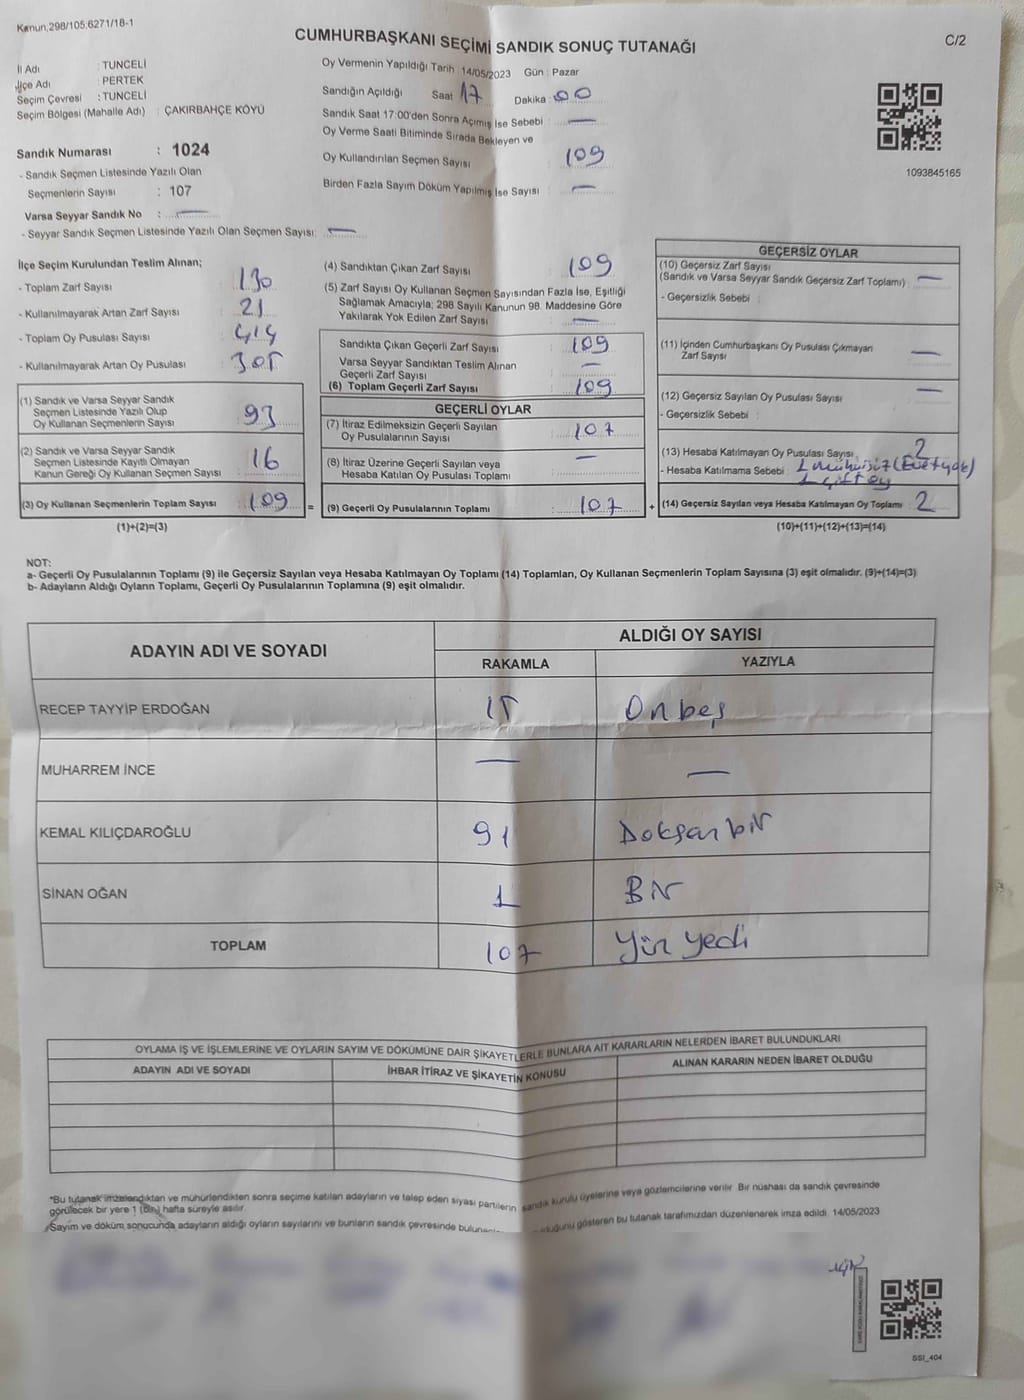 Kanun;298/105;6271/18-1
CUMHURBAŞKANI SEÇİMİ SANDIK SONUÇ TUTANAĞI
C/2
İl Adı : TUNCELİ
İlçe Adı : PERTEK
Seçim Çevresi : TUNCELİ
Seçim Bölgesi (Mahalle Adı) : ÇAKIRBAHÇE KÖYÜ
Sandık Numarası : 1024
- Sandık Seçmen Listesinde Yazılı Olan
Seçmenlerin Sayısı : 107
Varsa Seyyar Sandık No : —
- Seyyar Sandık Seçmen Listesinde Yazılı Olan Seçmen Sayısı: —
Oy Vermenin Yapıldığı Tarih : 14/05/2023 Gün : Pazar
Sandığın Açıldığı Saat : 17 Dakika : 00
Sandık Saat 17:00'den Sonra Açımış İse Sebebi : —
Oy Verme Saati Bitiminde Sırada Bekleyen ve
Oy Kullandırılan Seçmen Sayısı : 109
Birden Fazla Sayım Döküm Yapılmış İse Sayısı : —
1093845165
İlçe Seçim Kurulundan Teslim Alınan;
- Toplam Zarf Sayısı : 130
- Kullanılmayarak Artan Zarf Sayısı : 21
- Toplam Oy Pusulası Sayısı : 414
- Kullanılmayarak Artan Oy Pusulası : 305
(1) Sandık ve Varsa Seyyar Sandık
Seçmen Listesinde Yazılı Olup
Oy Kullanan Seçmenlerin Sayısı : 93
(2) Sandık ve Varsa Seyyar Sandık
Seçmen Listesinde Kayıtlı Olmayan
Kanun Gereği Oy Kullanan Seçmen Sayısı : 16
(3) Oy Kullanan Seçmenlerin Toplam Sayısı : 109
(1)+(2)=(3)
(4) Sandıktan Çıkan Zarf Sayısı : 109
(5) Zarf Sayısı Oy Kullanan Seçmen Sayısından Fazla İse, Eşitliği
Sağlamak Amacıyla; 298 Sayılı Kanunun 98. Maddesine Göre
Yakılarak Yok Edilen Zarf Sayısı : —
Sandıkta Çıkan Geçerli Zarf Sayısı : 109
Varsa Seyyar Sandıktan Teslim Alınan
Geçerli Zarf Sayısı : —
(6) Toplam Geçerli Zarf Sayısı : 109
GEÇERLİ OYLAR
(7) İtiraz Edilmeksizin Geçerli Sayılan
Oy Pusulalarının Sayısı : 107
(8) İtiraz Üzerine Geçerli Sayılan veya
Hesaba Katılan Oy Pusulası Toplamı : —
= (9) Geçerli Oy Pusulalarının Toplamı : 107
GEÇERSİZ OYLAR
(10) Geçersiz Zarf Sayısı
(Sandık ve Varsa Seyyar Sandık Geçersiz Zarf Toplamı) : —
- Geçersizlik Sebebi :
(11) İçinden Cumhurbaşkanı Oy Pusulası Çıkmayan
Zarf Sayısı : —
(12) Geçersiz Sayılan Oy Pusulası Sayısı : —
- Geçersizlik Sebebi :
(13) Hesaba Katılmayan Oy Pusulası Sayısı : 2
- Hesaba Katılmama Sebebi : 1 mühürsüz (Evet yok)
1 çift oy
+ (14) Geçersiz Sayılan veya Hesaba Katılmayan Oy Toplamı : 2
(10)+(11)+(12)+(13)=(14)
NOT:
a- Geçerli Oy Pusulalarının Toplamı (9) ile Geçersiz Sayılan veya Hesaba Katılmayan Oy Toplamı (14) Toplamları, Oy Kullanan Seçmenlerin Toplam Sayısına (3) eşit olmalıdır. (9)+(14)=(3)
b- Adayların Aldığı Oyların Toplamı, Geçerli Oy Pusulalarının Toplamına (9) eşit olmalıdır.
ADAYIN ADI VE SOYADI
ALDIĞI OY SAYISI
RAKAMLA YAZIYLA
RECEP TAYYİP ERDOĞAN 15 Onbeş
MUHARREM İNCE — —
KEMAL KILIÇDAROĞLU 91 Doksan bir
SİNAN OĞAN 1 Bir
TOPLAM 107 Yüz yedi
OYLAMA İŞ VE İŞLEMLERİNE VE OYLARIN SAYIM VE DÖKÜMÜNE DAİR ŞİKAYETLERLE BUNLARA AİT KARARLARIN NELERDEN İBARET BULUNDUKLARI
ADAYIN ADI VE SOYADI İHBAR İTİRAZ VE ŞİKAYETİN KONUSU ALINAN KARARIN NEDEN İBARET OLDUĞU
*Bu tutanak imzalandıktan ve mühürlendikten sonra seçime katılan adayların ve talep eden siyasi partilerin sandık kurulu üyelerine veya gözlemcilerine verilir. Bir nüshası da sandık çevresinde
görülecek bir yere 1 (bir) hafta süreyle asılır.
Sayım ve döküm sonucunda adayların aldığı oyların sayılarını ve bunların sandık çevresinde duğunu gösteren bu tutanak tarafımızdan düzenlenerek imza edildi. 14/05/2023
SSI_404